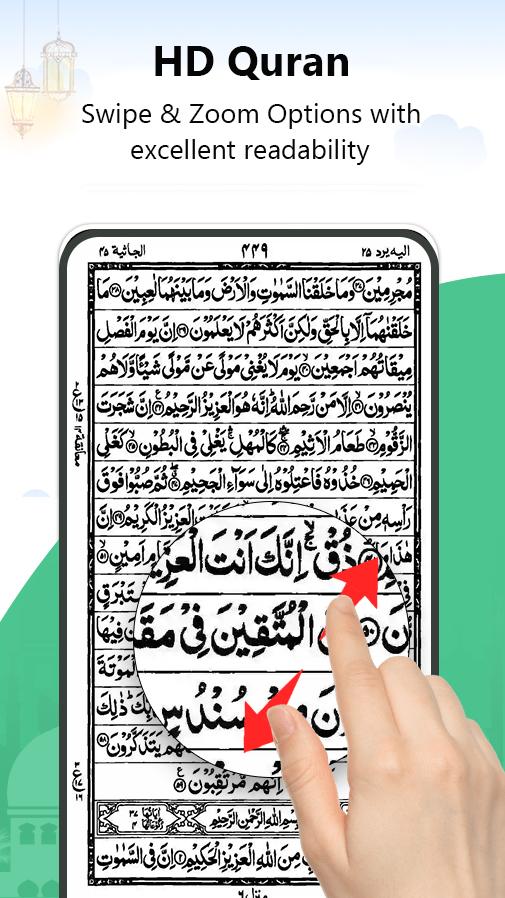 HD Quran
Swipe & Zoom Options with
excellent readability
اليه يرد ٢٥
٤٤٩
الجاثية ٤٥
مُجْرِمِيْنَ وَمَا خَلَقْنَا السَّمٰوٰتِ وَالْاَرْضَ وَمَا بَيْنَهُمَا لٰعِبِيْنَ مَا
خَلَقْنٰهُمَاۤ اِلَّا بِالْحَقِّ وَلٰكِنَّ اَكْثَرَهُمْ لَا يَعْلَمُوْنَ اِنَّ يَوْمَ الْفَصْلِ
مِيْقَاتُهُمْ اَجْمَعِيْنَ يَوْمَ لَا يُغْنِىْ مَوْلًى عَنْ مَّوْلًى شَيْئًا وَّلَا هُمْ
يُنْصَرُوْنَ اِلَّا مَنْ رَّحِمَ اللّٰهُ اِنَّهٗ هُوَ الْعَزِيْزُ الرَّحِيْمُ اِنَّ شَجَرَتَ
الزَّقُّوْمِ طَعَامُ الْاَثِيْمِ كَالْمُهْلِ يَغْلِىْ فِى الْبُطُوْنِ كَغَلْىِ
الْحَمِيْمِ خُذُوْهُ فَاعْتِلُوْهُ اِلٰى سَوَآءِ الْجَحِيْمِ ثُمَّ صُبُّوْا فَوْقَ
رَاْسِهٖ مِنْ الْعَزِيْزُ الْكَرِيْمُ اِنَّ
هٰذَا اَمِيْنٍ
ذُقْ اِنَّكَ اَنْتَ
الْمُتَّقِيْنَ فِىْ
سُنْدُسٍ
فِيْهَا
الْمَوْتَةَ
ذٰلِكَ
يَتَذَكَّرُوْنَ
اِنَّهُمْ مُّرْتَقِبُوْنَ
بِسْمِ اللّٰهِ الرَّحْمٰنِ الرَّحِيْمِ
مِنَ اللّٰهِ الْعَزِيْزِ الْحَكِيْمِ اِنَّ فِى السَّمٰوٰتِ